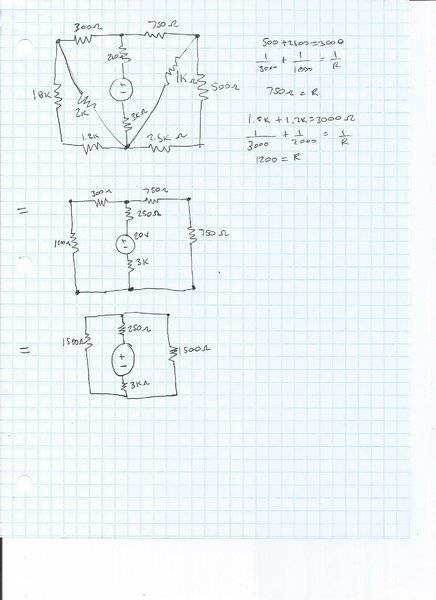 300Ω 750Ω
1KΩ 500Ω
1.8K 2K 3KΩ
1.2K 2.5K Ω
500 + 2500 = 3000
1/3000 + 1/1000 = 1/R
750Ω = R
1.8K + 1.2K = 3000 Ω
1/3000 + 1/2000 = 1/R
1200 = R
=
300Ω 750Ω
250Ω
20V 750Ω
3K
=
250Ω
1500Ω 1500Ω
3KΩ